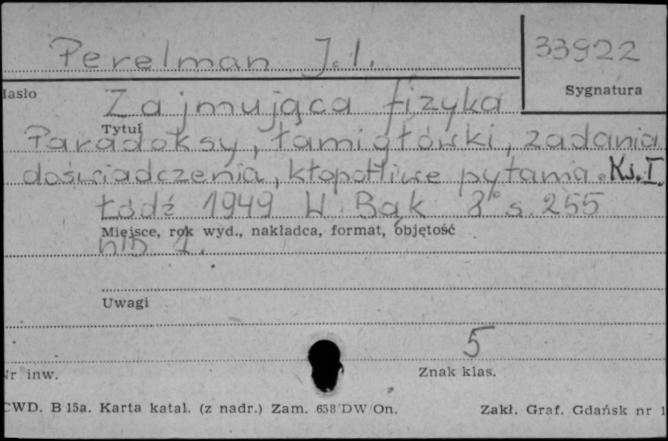 Perelman J. I.
33922
Sygnatura
Hasło
Zajmująca fizyka
Tytuł
Paradoksy, łamigłówki, zadania
doświadczenia, kłopotliwe pytania. Ks. I.
Łódź 1949 W. Bąk 8° s. 255
Miejsce, rok wyd., nakładca, format, objętość
nlb 1.
Uwagi
5
Nr inw.
Znak klas.
CWD. B 15a. Karta katal. (z nadr.) Zam. 658/DW/On.
Zakł. Graf. Gdańsk nr 1